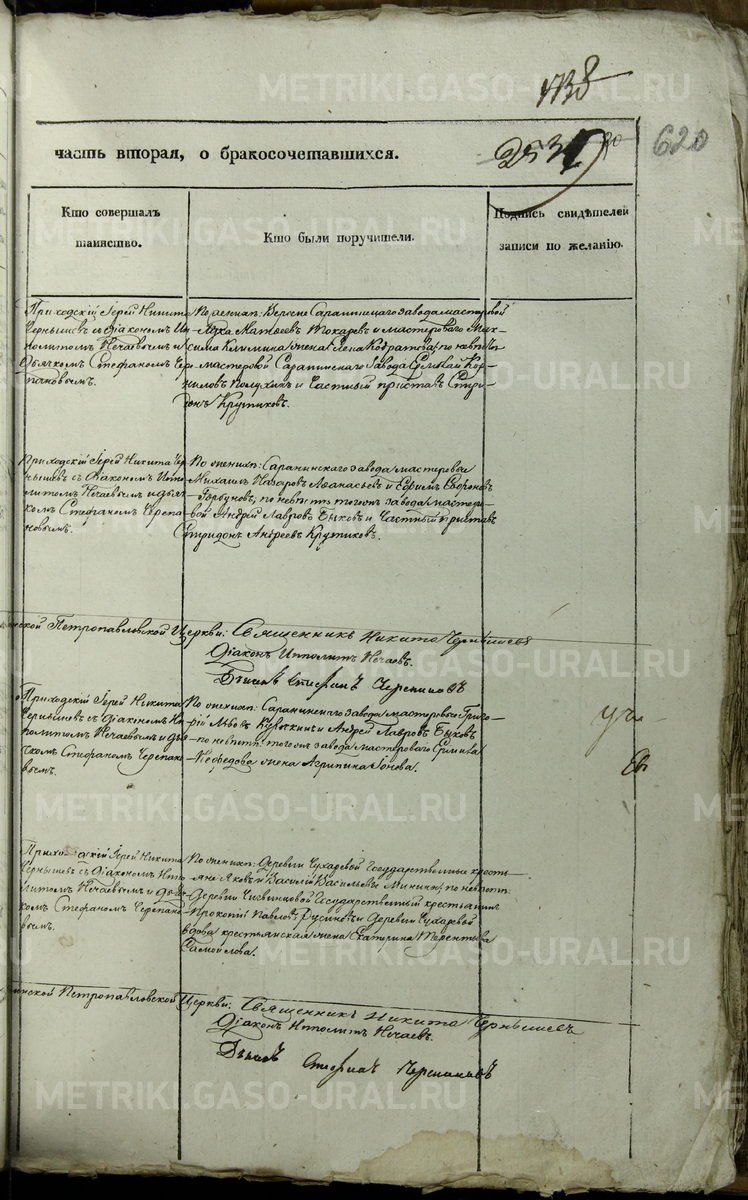 1738
часть вторая, о бракосочетавшихся.
620
Кто совершалъ
таинство.
Кто были поручители.
Подпись свидѣтелей
записи по желанію.
Приходскій Іерей Никита
Чернышевъ съ Діакономъ Ип-
политомъ Нечаевымъ и
Дьячкомъ Стефаномъ Чере-
пановымъ.
По женихѣ: Саранинскаго завода мастеровой
Матвеевъ Токаревъ и мастероваго Мак-
сима Климина жена Елена Кодратова; по невѣстѣ
мастеровой Саранинскаго Завода Ермолай Кор-
ниловъ и Частный приставъ Спири-
донъ Крутиковъ.
Приходскій Іерей Никита Чер-
нышевъ съ Діакономъ Иппо-
литомъ Нечаевымъ и дьяч-
комъ Стефаномъ Черепа-
новымъ.
По женихѣ: Саранинскаго завода мастеровой
Михаилъ Назаровъ Афанасьевъ и Ефимъ
Горбуновъ, по невѣстѣ тогожъ завода мастеро-
вой Андрей Лавровъ Быковъ и Частный приставъ
Спиридонъ Андреевъ Крутиковъ.
инской Петропавловской Церкви: Священникъ Никита Чернышевъ
Діаконъ Ипполитъ Нечаевъ.
Дьячекъ Стефанъ Черепановъ
Приходскій Іерей Никита
Чернышевъ съ Діакономъ Ип-
политомъ Нечаевымъ и дья-
чкомъ Стефаномъ Черепано-
вымъ.
По женихѣ: Саранинскаго завода мастеровые Григо-
рій Львовъ и Андрей Лавровъ Быковъ
по невѣстѣ: тогожъ завода мастероваго
Нефедова жена Агрипина Іонова.
Приходскій Іерей Никита
Чернышевъ съ Діакономъ Иппо-
литомъ Нечаевымъ и дьяч-
комъ Стефаномъ Черепано-
вымъ.
По женихѣ: Деревни Чухаревой Государственные кресть-
яне Яковъ и Василій Васильевы Минины, по невѣстѣ:
Деревни Государственный крестьянинъ
Прокопій Павловъ Русиновъ и Деревни Чухаревой
вдова крестьянская жена Екатерина Терентьева
Самойлова.
инской Петропавловской Церкви: Священникъ Никита Чернышевъ
Діаконъ Ипполитъ Нечаевъ.
Дьячекъ Стефанъ Черепановъ
METRIKI.GASO-URAL.RU